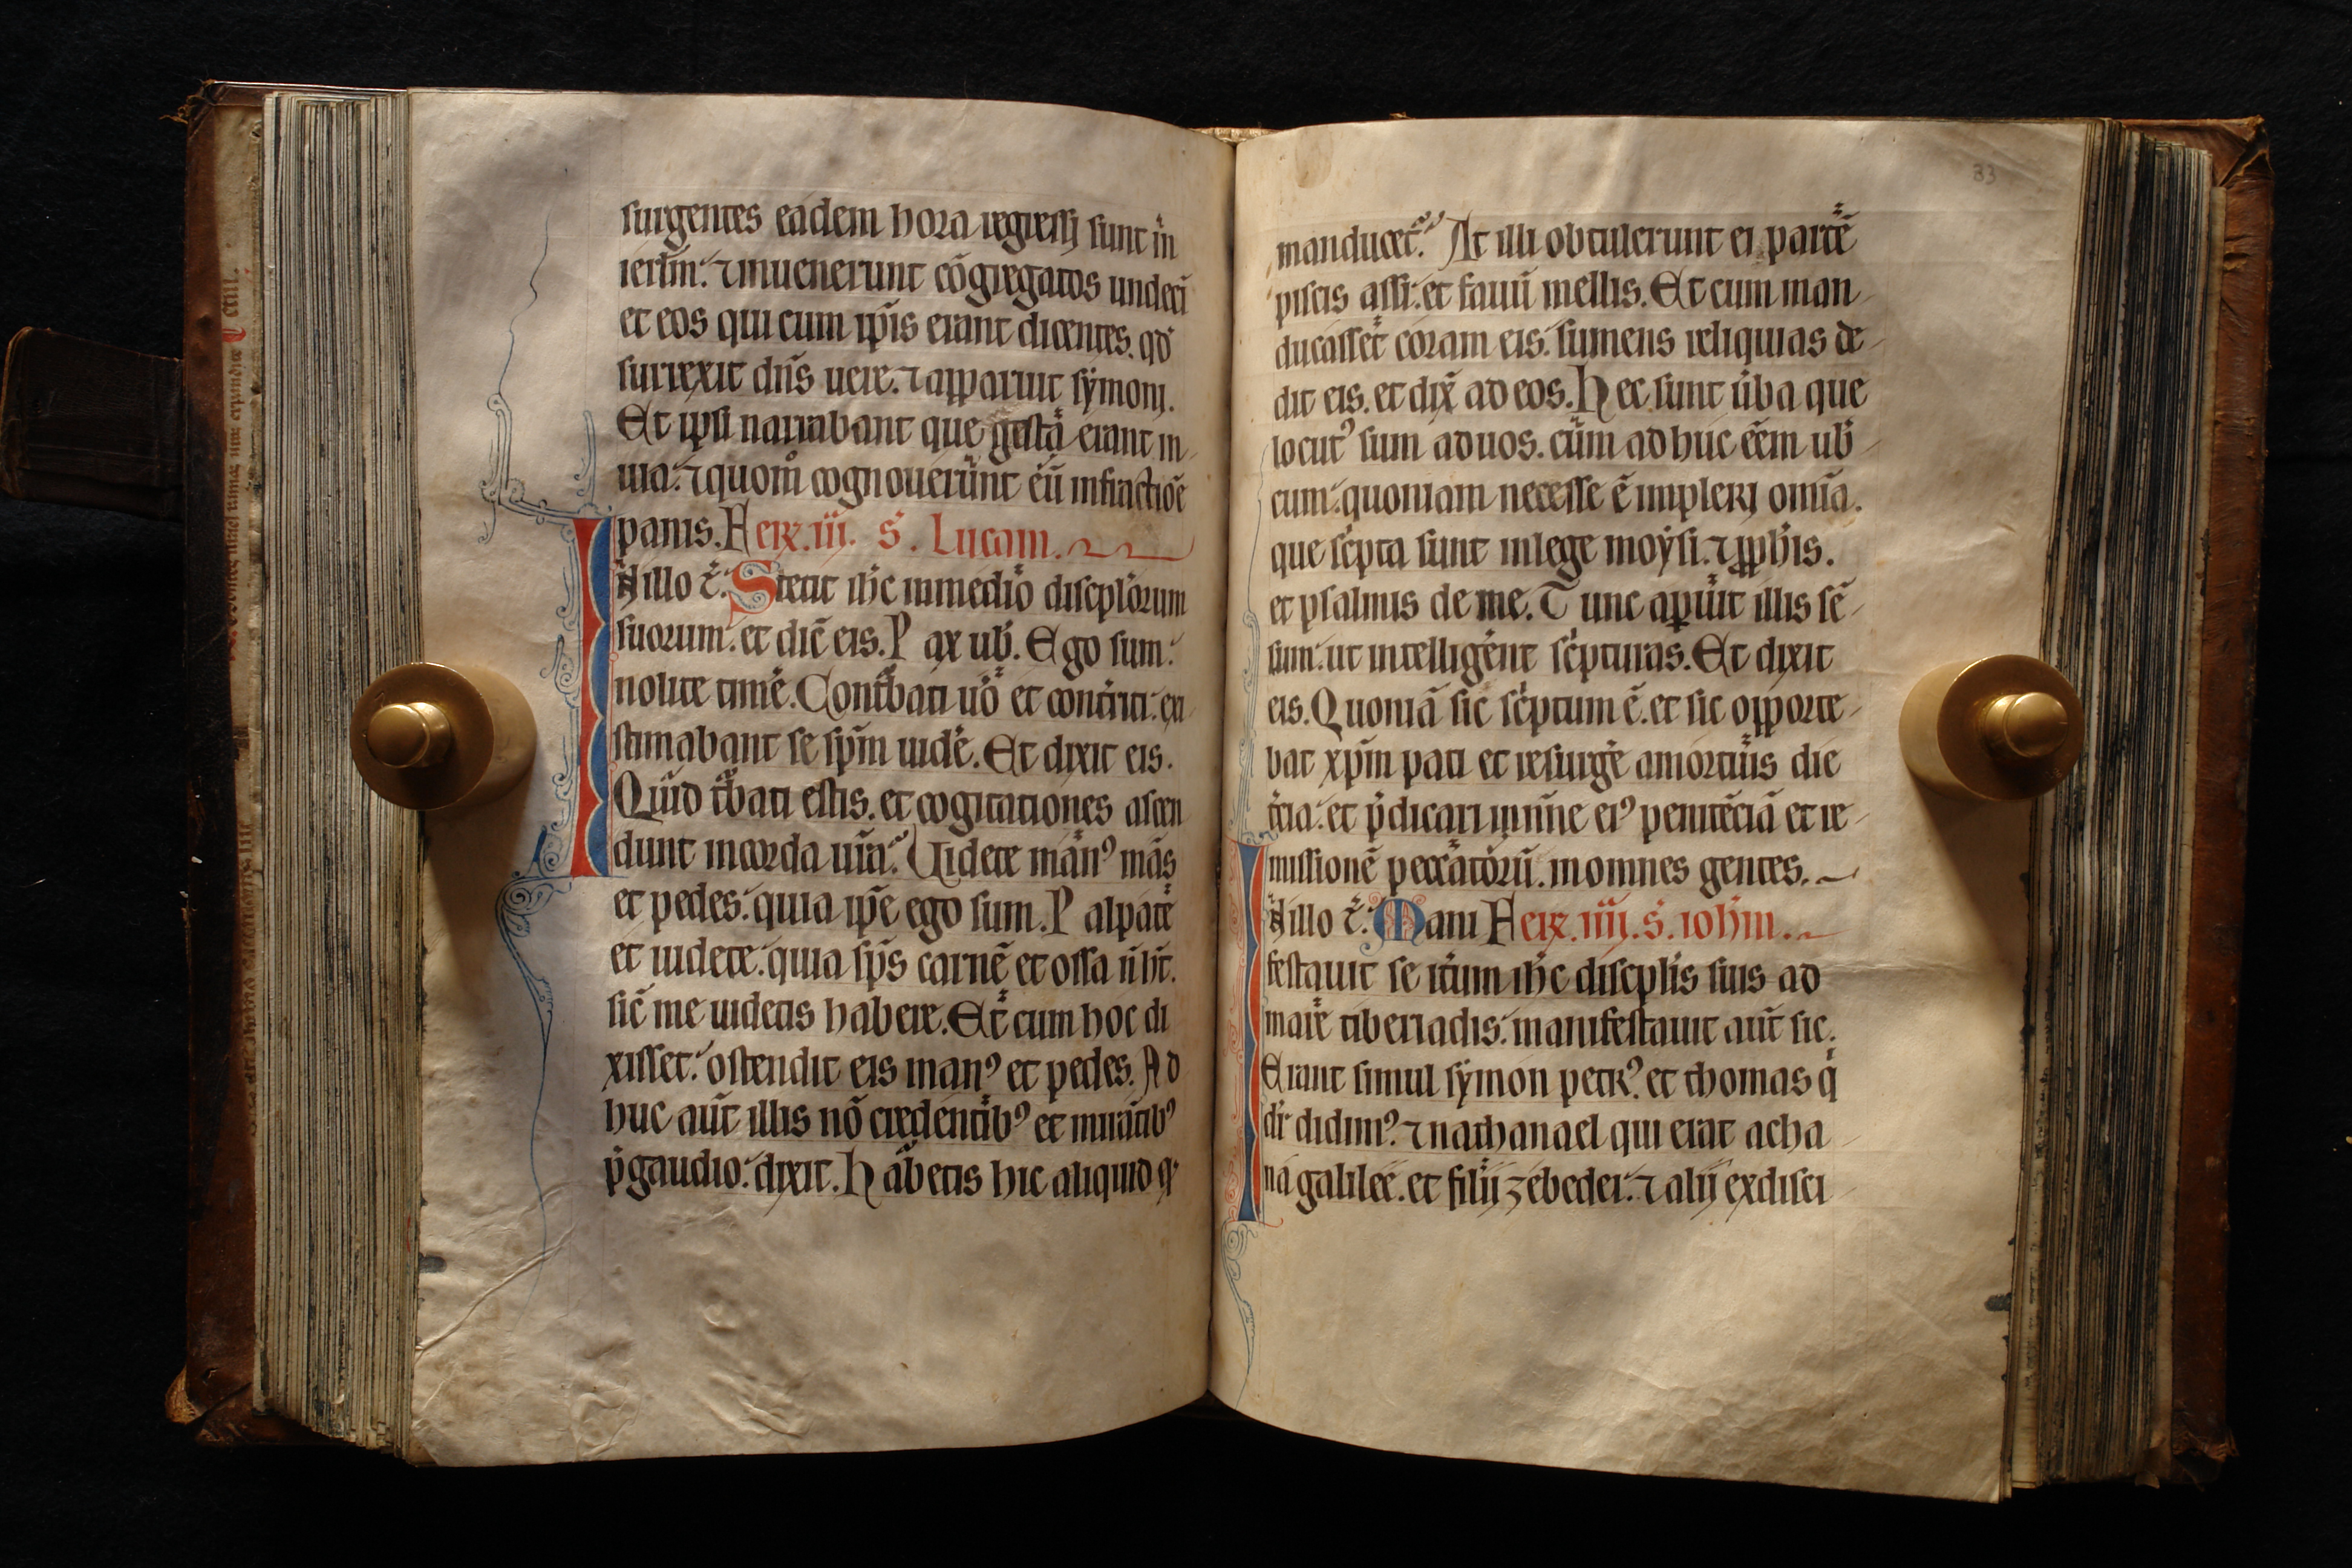 surgentes eadem hora regressi sunt in
ierl̃m. ⁊ inuenerunt cõgregatos undecĩ
et eos qui cum ip̃is erant dicentes. qd̕
surrexit dñs uere. ⁊ apparuit sẏmonj.
Et ipsi narrabant que gesta erant in
uia. ⁊ quom̊ cognouerunt eũ infractiõe
panis. Feriꝝ. iii. s̕. Lucam.
In illo t̃. Stetit ih̃c inmedio discipl̕orum
suorum. et dic̃ eis. P ax ub̕. Ego sum.
nolite timẽ. Cont̕bati uõ et cont̕riti. exi
stimabant se sp̃m uidẽ. Et dixit eis.
Quid t̕bati estis. et cogitationes ascen
dunt incorda ur̃a. Uidete manꝰ mãs
et pedes. quia ip̃e ego sum. P alpate
et uidete. quia sp̃s carnẽ et ossa ñ h̃t.
sic̃ me uidetis habere. Et cum hoc di
xisset. ostendit eis manꝰ et pedes. Ad
huc aut̃ illis nõ credentibꝰ et mirãtibꝰ
p̃gaudio. dixit. H abetis hic aliquid q̕
33
manducet̃. At illi obtulerunt ei partẽ
piscis assi. et fauũ mellis. Et cum man
ducasset coram eis. sumens reliquias de
dit eis. et dix̃ ad eos. H ec sunt ũba que
locutꝰ sum aduos. cũm adhuc eẽm ub̕
cum. quoniam necesse ẽ implerj om̃ia.
que sc̕pta sunt inlege moẏsi. ⁊ ꝓph̕is.
et psalmis de me. Tunc apuit illis sẽ
sum. ut intelligẽnt sc̕pturas. Et dixit
eis. Quoniã sic sc̕ptum ẽ. et sic opporte
bat xp̃m pati et resurgẽ amortuis die
t̕cia. et p̃dicari innoĩe eiꝰ penitẽciã et re
missionẽ peccatorũ. inomnes gentes.
In illo t̃. Mani Feriꝝ. iiij. s̕. ioh̕m.
festauit se it̕um ih̃c discipl̕is suis ad
mare tiberiadis. manifestauit aut̃ sic.
Erant simul sẏmon petrꝰ. et thomas q̕
dr̃ didimꝰ. ⁊ nathanael qui erat acha
na galilee. et filij zebedei. ⁊ alij exdisci